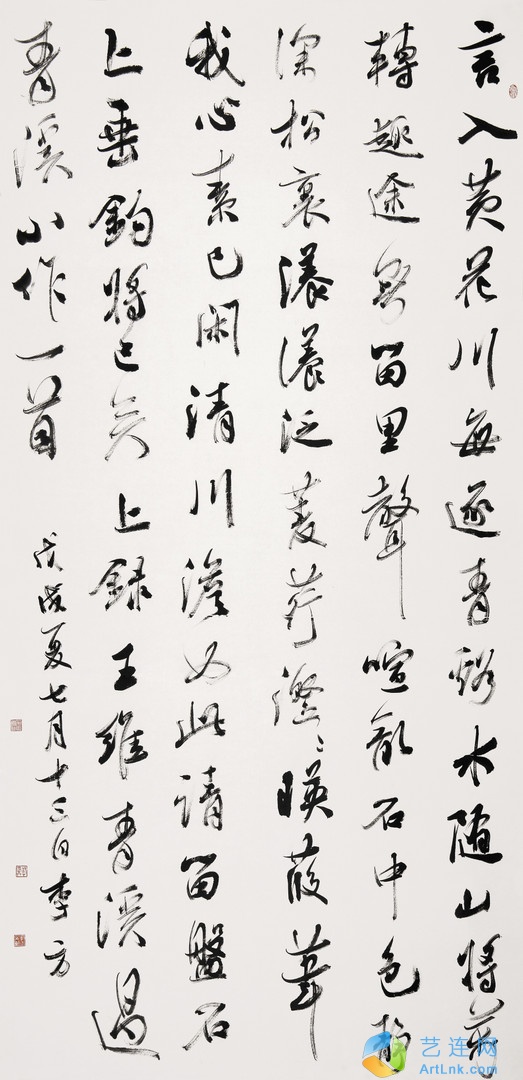 言入黄花川每逐青谿水随山將萬
轉趣途無百里聲喧亂石中色静
深松裏漾漾泛菱荇澄〻暎葭葦
我心素已閑清川澹如此請留盤石
上垂釣將已矣 上録王維青溪過
青溪小作一首
戊戌夏七月十三日李方
艺连网
ArtLnk.com